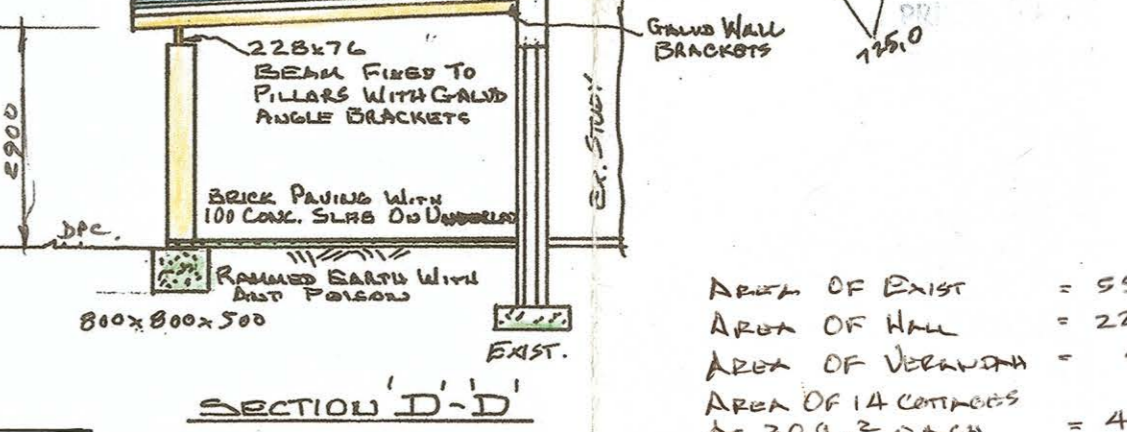 228x76
BEAM FIXED TO
PILLARS WITH GALVD
ANGLE BRACKETS
GALVD WALL
BRACKETS
725,0
2900
EX. STUDY
BRICK PAVING WITH
100 CONC. SLAB ON
DPC.
RAMMED EARTH WITH
ANT POISON
800x800x500
EXIST.
SECTION 'D'-'D'
AREA OF EXIST =
AREA OF HALL = 22
AREA OF VERANDAH =
AREA OF 14 COTTAGES
= 4